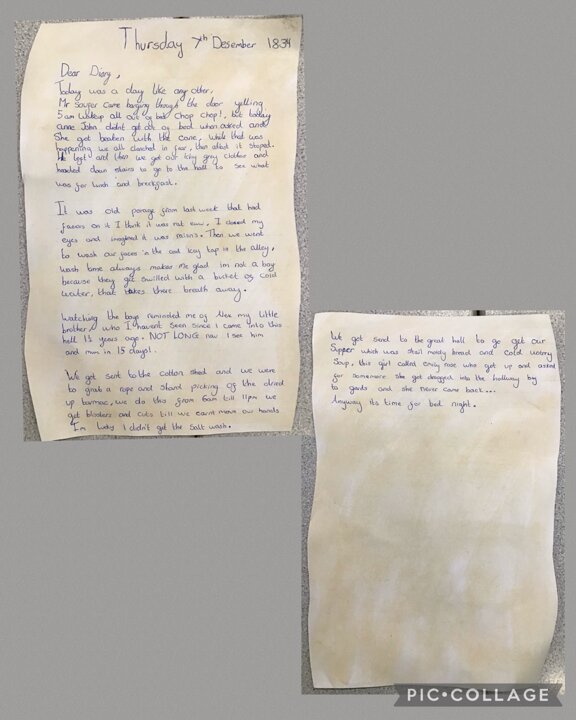 Thursday 7th Desember 1834
Dear Diary,
Today was a day like any other.
Mr Sauper came barging through the door yelling
5am wakeup all out of bed Chop Chop!, but today
anne John didn't get out of bed when asked and
She got beaten with the cane, while that was
happening we all clenched in fear, then albeit it stoped.
He left and then we got our icky grey clothes and
headed down stairs to go to the hall to see what
was for lunch and breckfast.
It was old porage from last week that had
faeces on it I think it was rat eww. I closed my
eyes and imagined it was raisins. Then we went
to wash our faces in the and icey tap in the alley,
wash time always makes me glad im not a boy
because they get swilled with a bucket of cold
water, that takes there breath away.
Watching the boys reminded me of Alex my little
brother who I havent seen since I came into this
hell 11 years ago. NOT LONG now I see him
and mum in 15 days!.
We get sent to the cotton shed and we were
to grab a rope and start picking of the dried
up tarmac, we do this from 6am till 11pm we
get blisters and cuts till we carnt move our hands
Im lucky I didn't get the Salt wash.
We get send to the great hall to go get our
Supper which was stail moldy bread and Cold watery
Soup, this girl called emily rose who got up and asked
for somemore she got dragged into the hallway by
to gards and she never came back...
Anyway its time for bed night.
PIC•COLLAGE